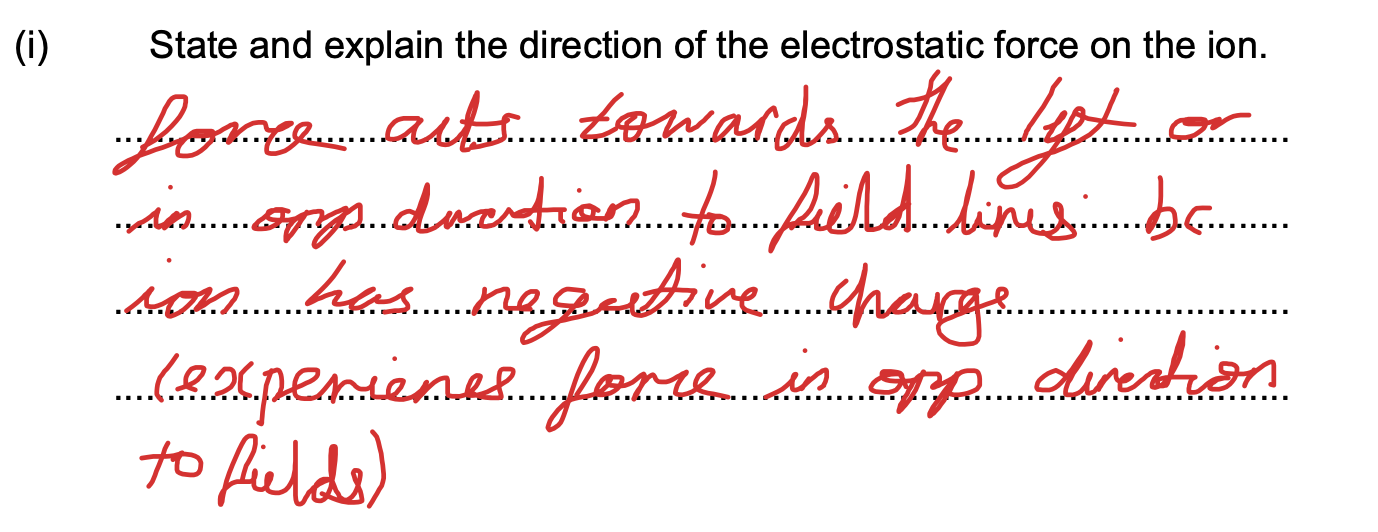 (i) State and explain the direction of the electrostatic force on the ion.
force acts towards the left or
in opp direction to field lines bc
ion has negative charge
(experienes force in opp direction
to fields)